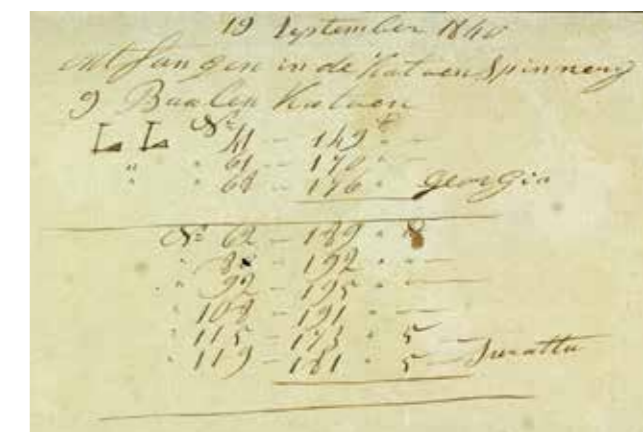 19 September 1840
ontfangen in de Katoen Spinnerij
9 Baalen Katoen
LL Nº 41 - 149 " -
" " 61 - 170 " -
" 68 - 176 " Georgia
Nº 62 - 189 " 8
" 88 - 192 " -
" 92 - 195 " -
" 108 - 191 " -
" 115 - 173 " 5
" 119 - 181 " 5 - Surattu